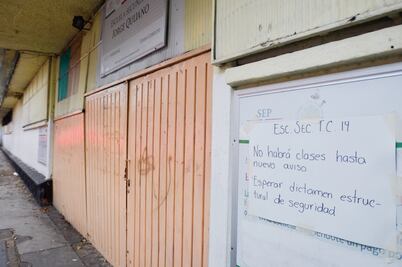 JORGE QUIJANO
JORGE QUIJANO
SEP
ESC. SEC T.C. 14
No habrá clases hasta
nuevo aviso
Esperar dictamen estruc-
tural de seguridad
un pago